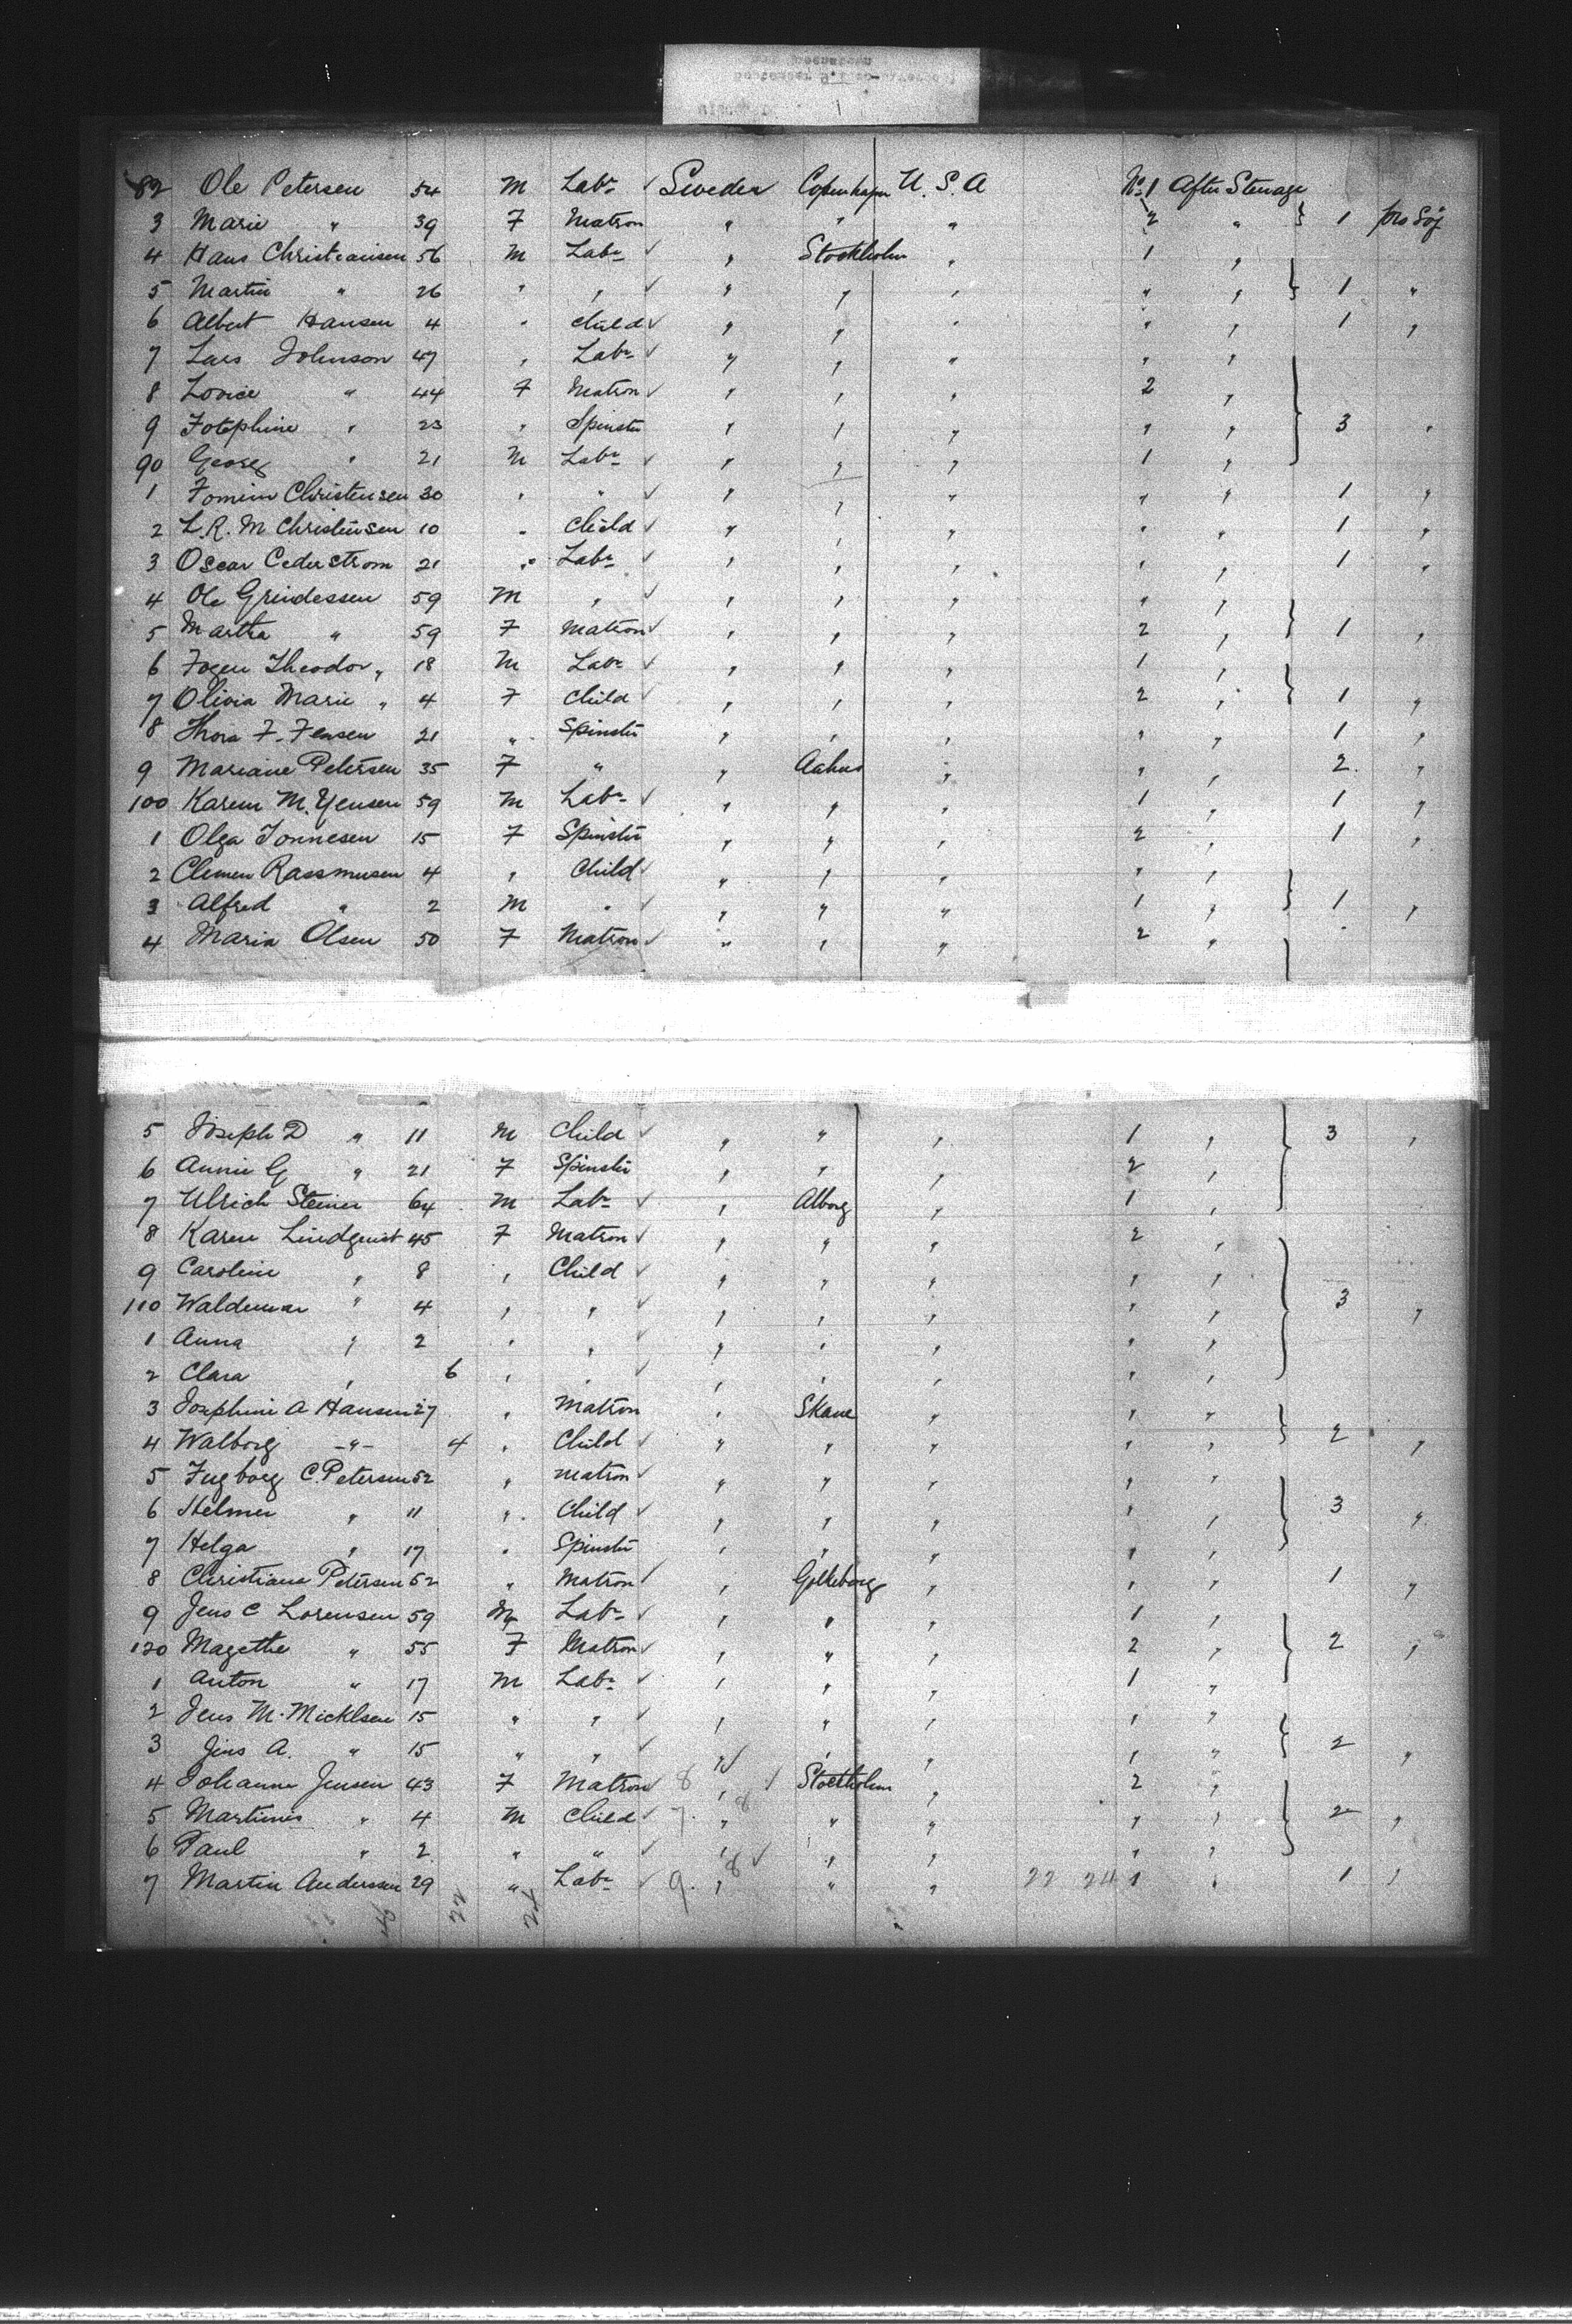 82 Ole Petersen 54 M Labr Sweden Copenhagen U. S. A No 1 After Steerage
3 Marie " 39 F Matron " " " 2 " 1 pro Soj
4 Hans Christiansen 56 M Labr " Stockholm " 1 "
5 Martin " 26 " " " " " " " 1 "
6 Albert Hansen 4 " Child " " " " " 1 "
7 Lars Johnson 47 " Labr " " " " "
8 Lovise " 44 F Matron " " " 2 "
9 Josephine " 23 " Spinster " " " " " 3 "
90 Georg " 21 M Labr " " " 1 "
1 Christensen 30 " " " " " " " 1 "
2 L. R. M Christensen 10 " Child " " " " " 1 "
3 Oscar Cederstrom 21 " Labr " " " " " 1 "
4 Ole Grindessen 59 M " " " " " "
5 Martha " 59 F Matron " " " 2 " 1 "
6 Theodor " 18 M Labr " " " 1 "
7 Olivia Marie " 4 F Child " " " 2 " 1 "
8 Thora F. Jensen 21 " Spinster " " " " " 1 "
9 Mariane Petersen 35 F " " Aahus " " " 2 "
100 Karen M. Yensen 59 M Labr " " " 1 " 1 "
1 Olga Tonnesen 15 F Spinster " " " 2 " 1 "
2 Clemen Rassmusen 4 " Child " " " " "
3 Alfred " 2 M " " " " 1 " 1 "
4 Maria Olsen 50 F Matron " " " 2 "
5 Joseph D " 11 M Child " " " 1 " 3 "
6 Annie G " 21 F Spinster " " " 2 "
7 Ulrich Steiner 64 M Labr " Alborg " 1 "
8 Karen Lindquist 45 F Matron " " " 2 "
9 Caroline " 8 " Child " " " " "
110 Waldemar " 4 " " " " " " " 3 "
1 Anna " 2 " " " " " " "
2 Clara " 6 " " " " " " "
3 Josephine A Hansen 27 " Matron " Skane " " "
4 Walborg -"- 4 " Child " " " " " 2 "
5 Ingborg C. Petersen 52 " Matron " " " " "
6 Helmer " 11 " Child " " " " " 3 "
7 Helga " 17 " Spinster " " " " "
8 Christiana Petersen 52 " Matron " Gotheborg " " " 1 "
9 Jens C Lorensen 59 M Labr " " " 1 "
120 Magethe " 55 F Matron " " " 2 " 2 "
1 Anton " 17 M Labr " " " 1 "
2 Jens M. Micklsen 15 " " " " " " "
3 Jens A. " 15 " " " " " " " 2 "
4 Johanna Jensen 43 F Matron 8 " Stockholm " 2 "
5 Martinus " 4 M Child 7. " 8 " " " " 2 "
6 Paul " 2 " " " " " " "
7 Martin Anderssen 29 " Labr 9. " 8 " " 22 24 1 " 1 "
46 22 24